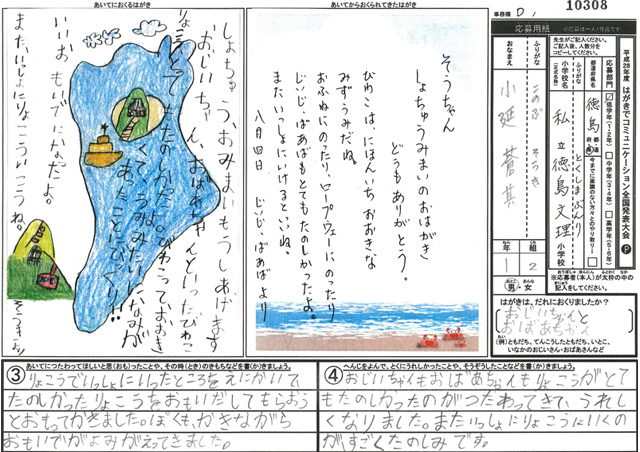 あいてにおくるはがき
しょちゅうおみまいもうしあげます
おじいちゃん、おばあちゃんといったびわこ
りょこうとってもたのしかったね。びわこっておおき
くて、うみみたいになみが
あったことにびっくり!!
いいおもいでになったよ。
またいっしょにりょこういこうね。
そうまより
あいてからおくられてきたはがき
そうちゃん
しょちゅうみまいのおはがき
どうもありがとう。
びわこは、にほんいちおおきな
みずうみだね。
おふねにのったり、ロープウェーにのったり
じいじ、ばあばもとてもたのしかったよ。
またいっしょにいけるといいね。
八月四日 じいじ、ばあばより
10308
事務欄 D
応募用紙
※応募は一人1作品です
先生がご記入ください。
ご記入後、人数分を
コピーしてください。
平成28年度 はがきでコミュニケーション全国発表大会 P
応募部門
低学年(1・2年)
中学年(3・4年)
高学年(5・6年)
都道府県名
徳島
都・道・府・県
今までに面識のない方々とのやり取り
ふりがな
小学校名
(正式名称)
とくしまぶんり
私立徳島文理
小学校
ふりがな
おなまえ
このぶ
小延 蒼
年 組
1 2
男・女
※応募者(本人)が太枠の中の
記入をしてください。
はがきは、だれにおくりましたか?
おじいちゃんと
おばあちゃん
(例)ともだち、てんこうしたともだち、いとこ、
いなかのおじいさん・おばあさんなど
③ あいてにつたわってほしいと思(おも)ったことや、その時(とき)のきもちなどを書(か)きましょう。
りょこうでいっしょにいったところをえにかいて
たのしかったりょこうをおもいだしてもらおう
とおもってかきました。ぼくも、かきながら
おもいでがよみがえってきました。
④ へんじをよんで、とくにうれしかったことや、そうぞうしたことなどを書(か)きましょう。
おじいちゃんもおばあちゃんもりょこうがとて
もたのしかったのがつたわってきて、うれし
くなりました。またいっしょにりょこうにいくの
がすごくたのしみです。